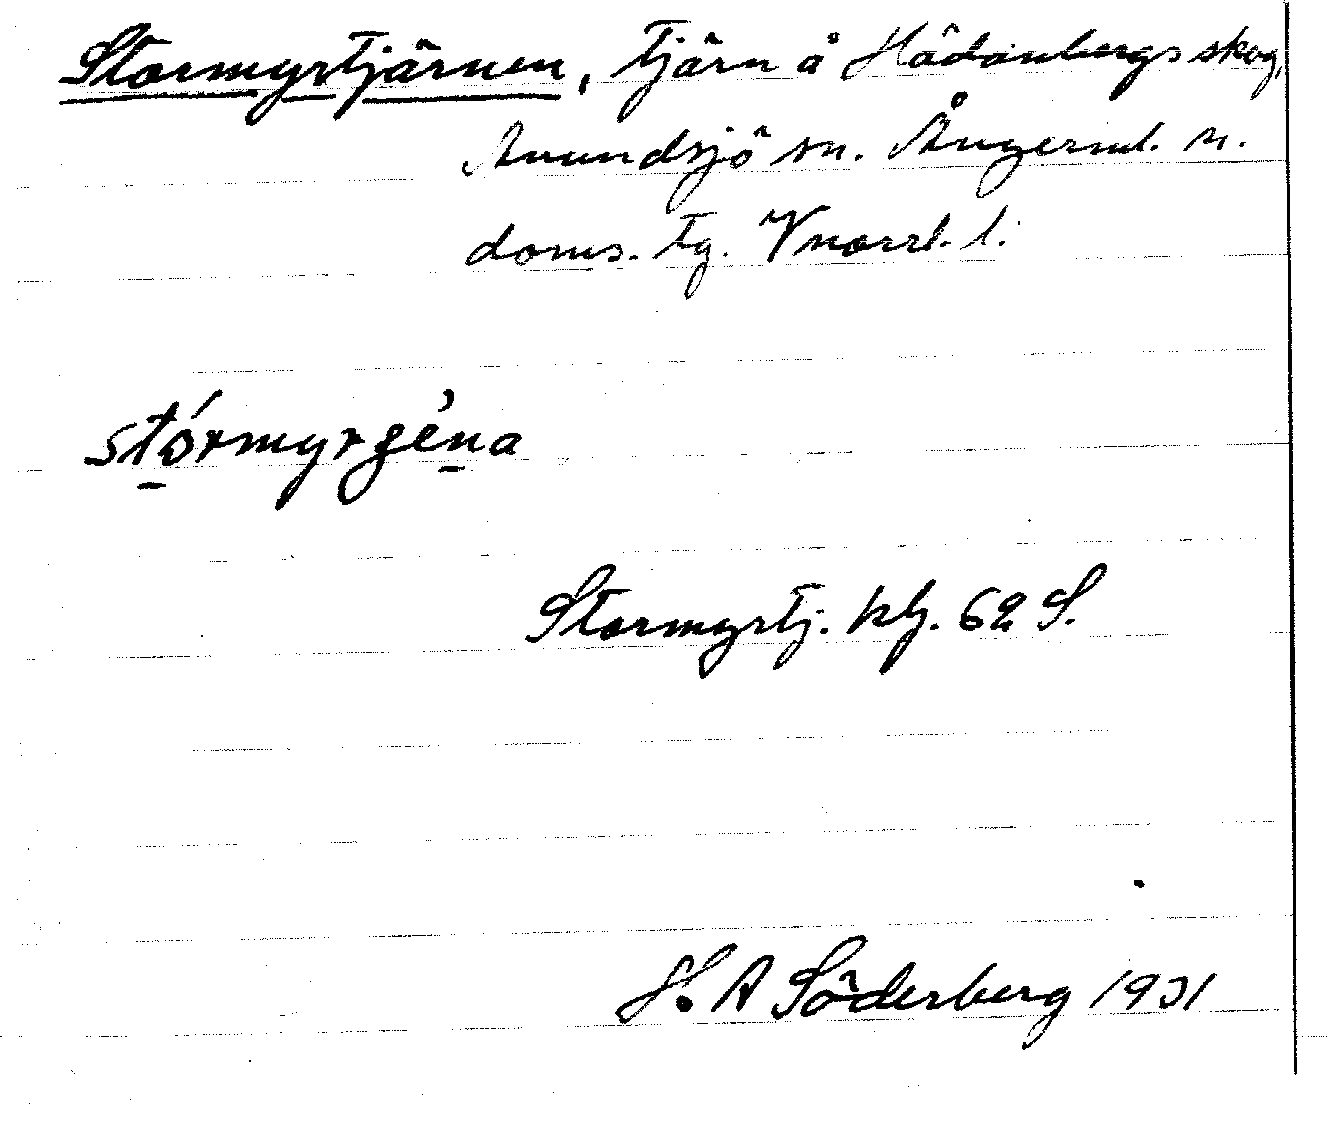 Stormyrtjärnen, tjärn å Hädanbergs skog,
Anundsjö sn. Ångerml. n.
doms. tg. Vnorrl. l.
stórmyrgéna
Stormyrtj. klj. 62 S.
H. A Söderberg 1931